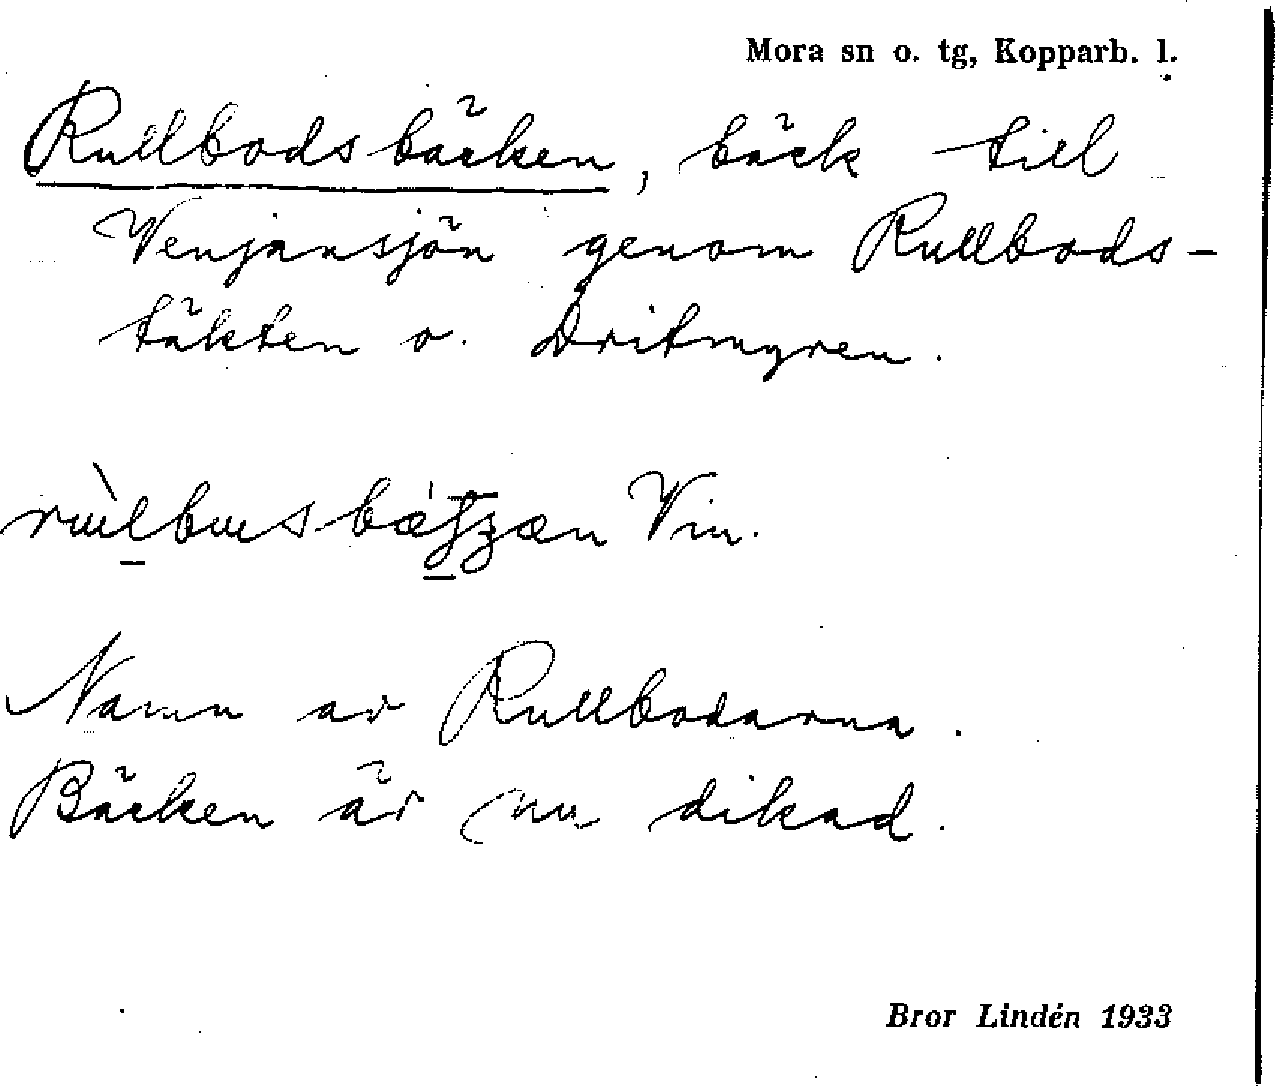 Mora sn o. tg, Kopparb. l.
Rullbodsbäcken, bäck till
Venjansjön genom Rullbods-
täkten o. Dritmyren.
Vin.
Namn av Rullbodarna.
Bäcken är nu dikad.
Bror Lindén 1933